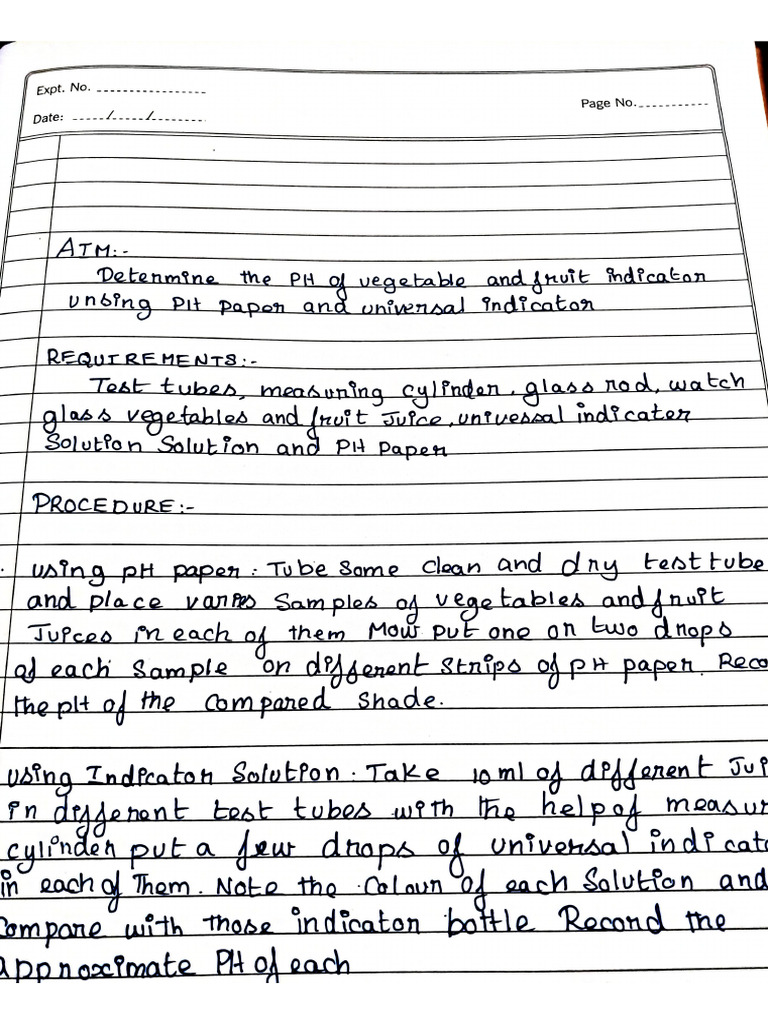 Expt. No.
Page No.
Date: / /
AIM:-
Determine the PH of vegetable and fruit indicator
unsing PH paper and universal indicator
REQUIREMENTS:-
Test tubes, measuring cylinder, glass rod, watch
glass vegetables and fruit Juice, univessal indicater
Solution Solution and PH Paper
PROCEDURE:-
using pH paper: Tube some clean and dry test tube
and place Samples of vegetables and fruit
Juices in each of them Mow put one or two drops
of each Sample on different strips of pH paper. Reco
the pH of the Compared Shade.
using Indicator Solution. Take 10 ml of different Jui
in different test tubes with the help of measur
cylinder put a few drops of universal indicato
in each of Them. Note the Colour of each Solution and
Compare with those indicator bottle Record the
approximate PH of each